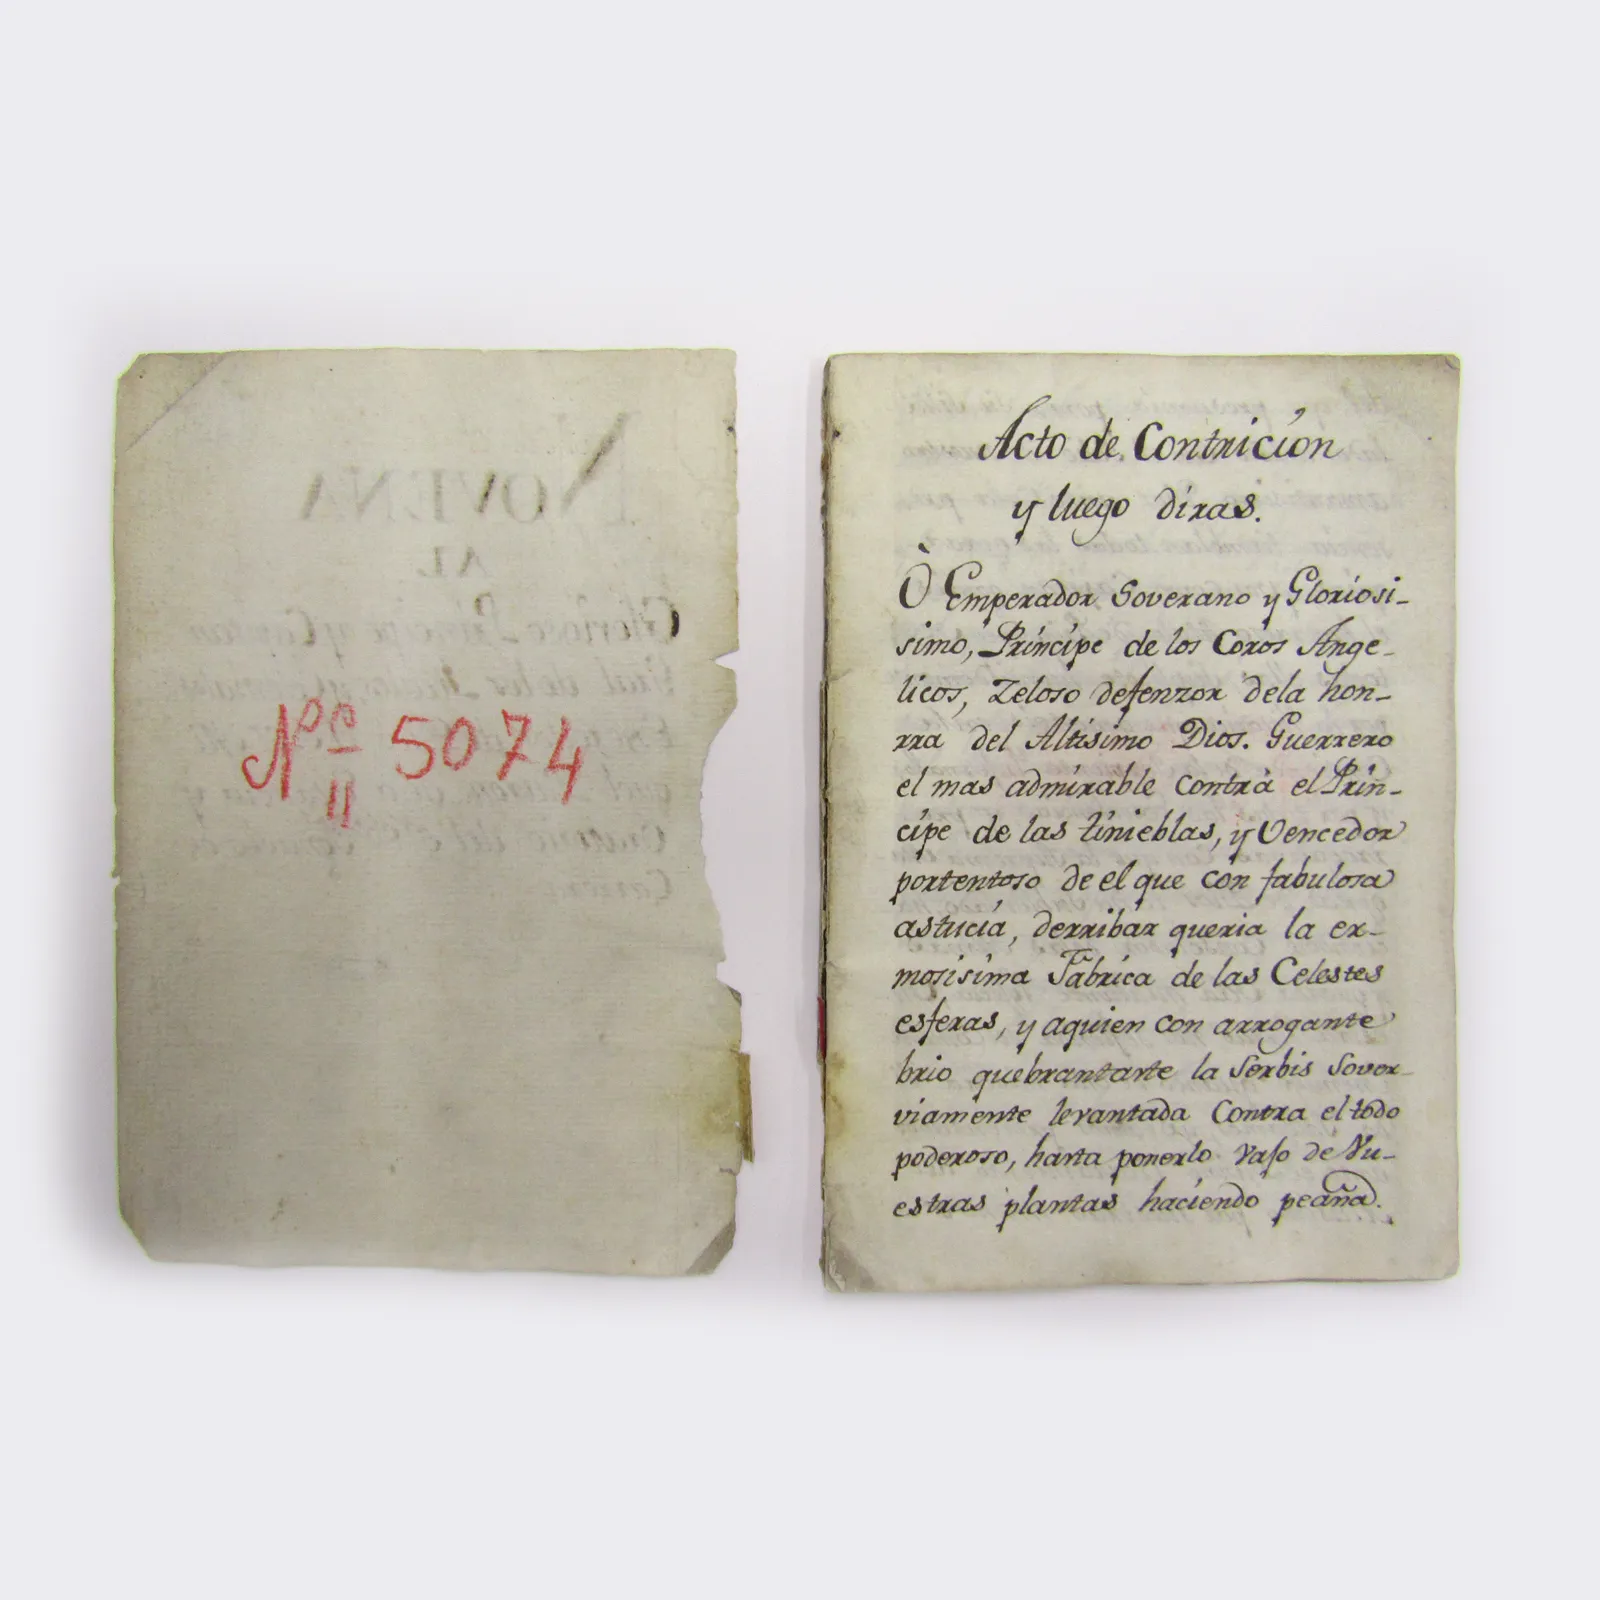 NOVENA
AL
Glorioso
Nº 5074
Acto de Contricion
y luego diras.
Ò Emperador Soverano y Gloriosi-
simo, Principe de los Coros Ange-
licos, Zeloso defenzor dela hon-
rra del Altisimo Dios. Guerrero
el mas admirable contrà el Prin-
cipe de las tinieblas, y Vencedor
portentoso de el que con fabulosa
astucia, derribar queria la er-
mosisima Fabrica de las Celestes
esferas, y aquien con arrogante
brio quebrantarte la Serbis Sover-
viamente levantada Contra el todo
poderoso, hasta ponerlo Vajo de Vu-
estras plantas haciendo peaña.